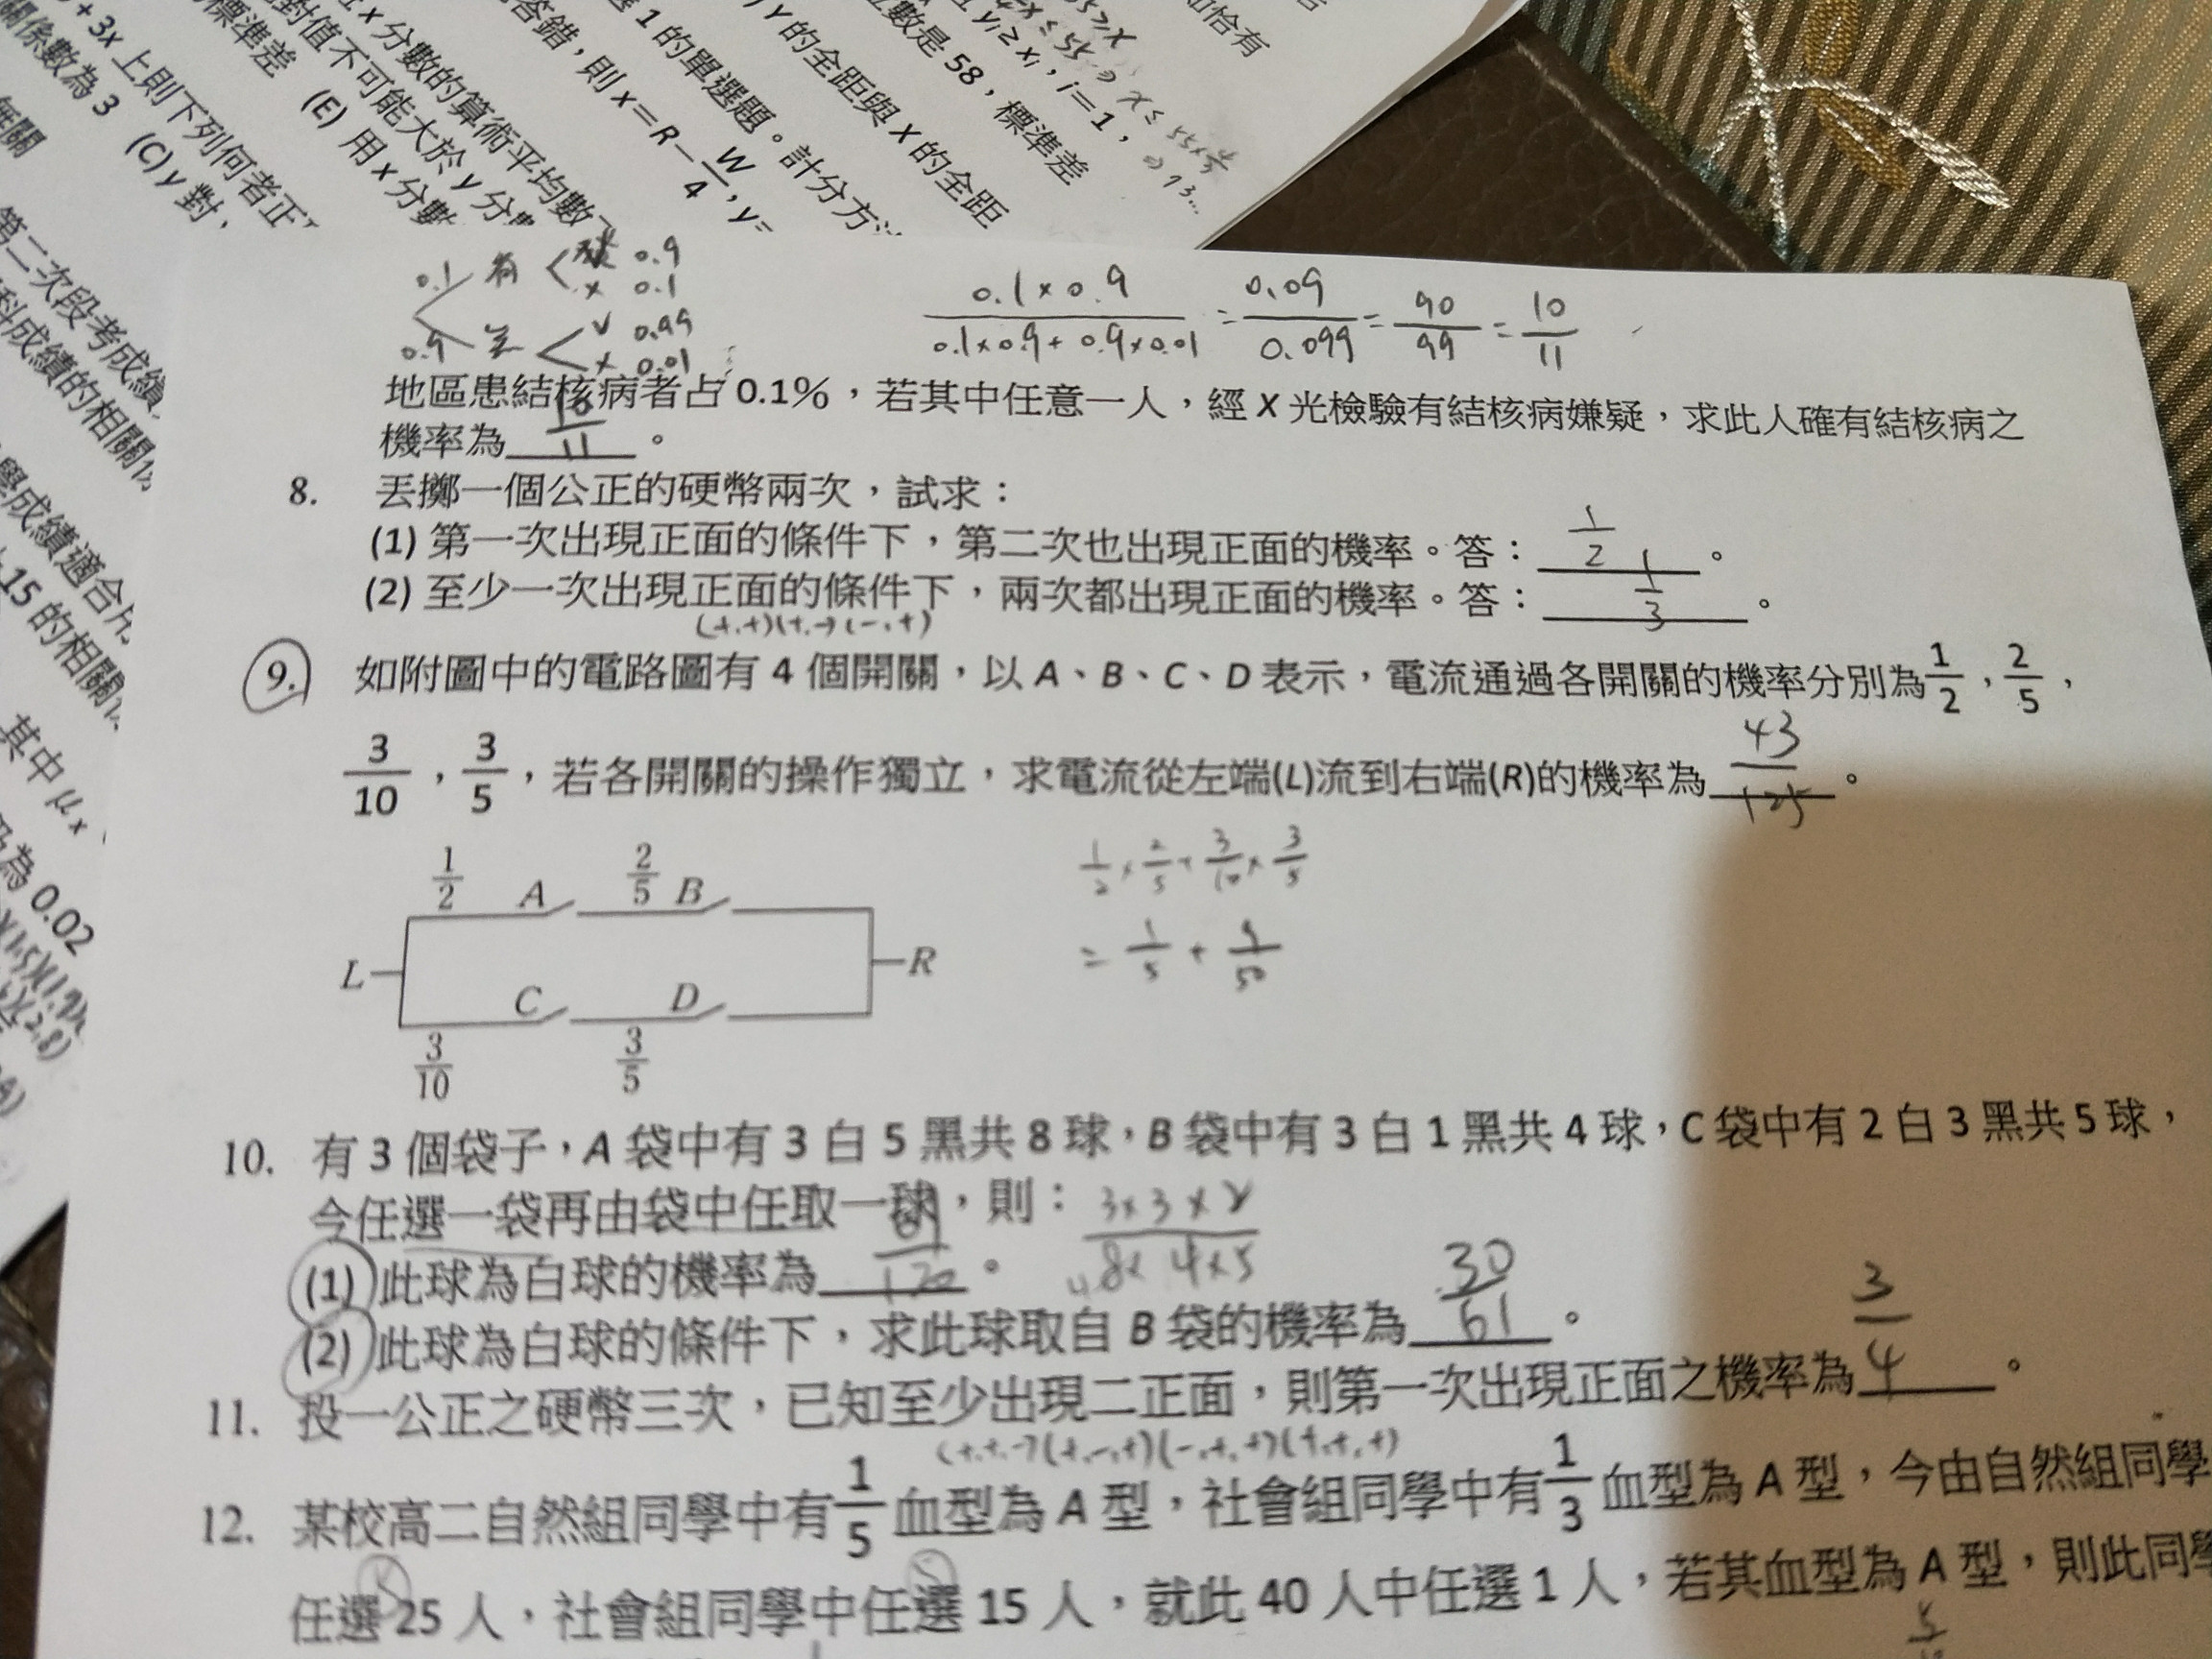 + 3x 上則下列何者正
關係數為 3 (C) y 對
無關
x 分數的算術平均數
對值不可能大於 y 分
標準差 (E) 用 x 分數
答錯,則 x = R − W/4 , y =
1 的單選題。計分方
Y 的全距與 X 的全距
數是 58,標準差
y₁ ≥ x₁, i = 1,
如恰有
第二次段考成績
科成績的相關
學成績適合
15 的相關
其中 μx
為 0.02
0.1 有 0.9
x 0.1
0.9 v 0.99
x 0.01
0.1×0.9 / 0.1×0.9+0.9×0.01 = 0.09 / 0.099 = 90/99 = 10/11
地區患結核病者占 0.1%,若其中任意一人,經 X 光檢驗有結核病嫌疑,求此人確有結核病之
機率為 10/11 。
8. 丟擲一個公正的硬幣兩次,試求:
(1) 第一次出現正面的條件下,第二次也出現正面的機率。答: 1/2 。
(2) 至少一次出現正面的條件下,兩次都出現正面的機率。答: 1/3 。
(+,+)(+,-)(-,+)
9. 如附圖中的電路圖有 4 個開關,以 A、B、C、D 表示,電流通過各開關的機率分別為 1/2 , 2/5 ,
3/10 , 3/5 ,若各開關的操作獨立,求電流從左端(L)流到右端(R)的機率為 43/125 。
1/2 A 2/5 B
L R
C D
3/10 3/5
1/2 × 2/5 + 3/10 × 3/5
= 1/5 + 9/50
10. 有 3 個袋子,A 袋中有 3 白 5 黑共 8 球,B 袋中有 3 白 1 黑共 4 球,C 袋中有 2 白 3 黑共 5 球,
今任選一袋再由袋中任取一球,則:
3×3×2 / 8×4×5
(1) 此球為白球的機率為 61/120 。
(2) 此球為白球的條件下,求此球取自 B 袋的機率為 30/61 。
11. 投一公正之硬幣三次,已知至少出現二正面,則第一次出現正面之機率為 3/4 。
(+,+,-)(+,-,+)(-,+,+)(+,+,+)
12. 某校高二自然組同學中有 1/5 血型為 A 型,社會組同學中有 1/3 血型為 A 型,今由自然組同學
5 5
任選 25 人,社會組同學中任選 15 人,就此 40 人中任選 1 人,若其血型為 A 型,則此同學